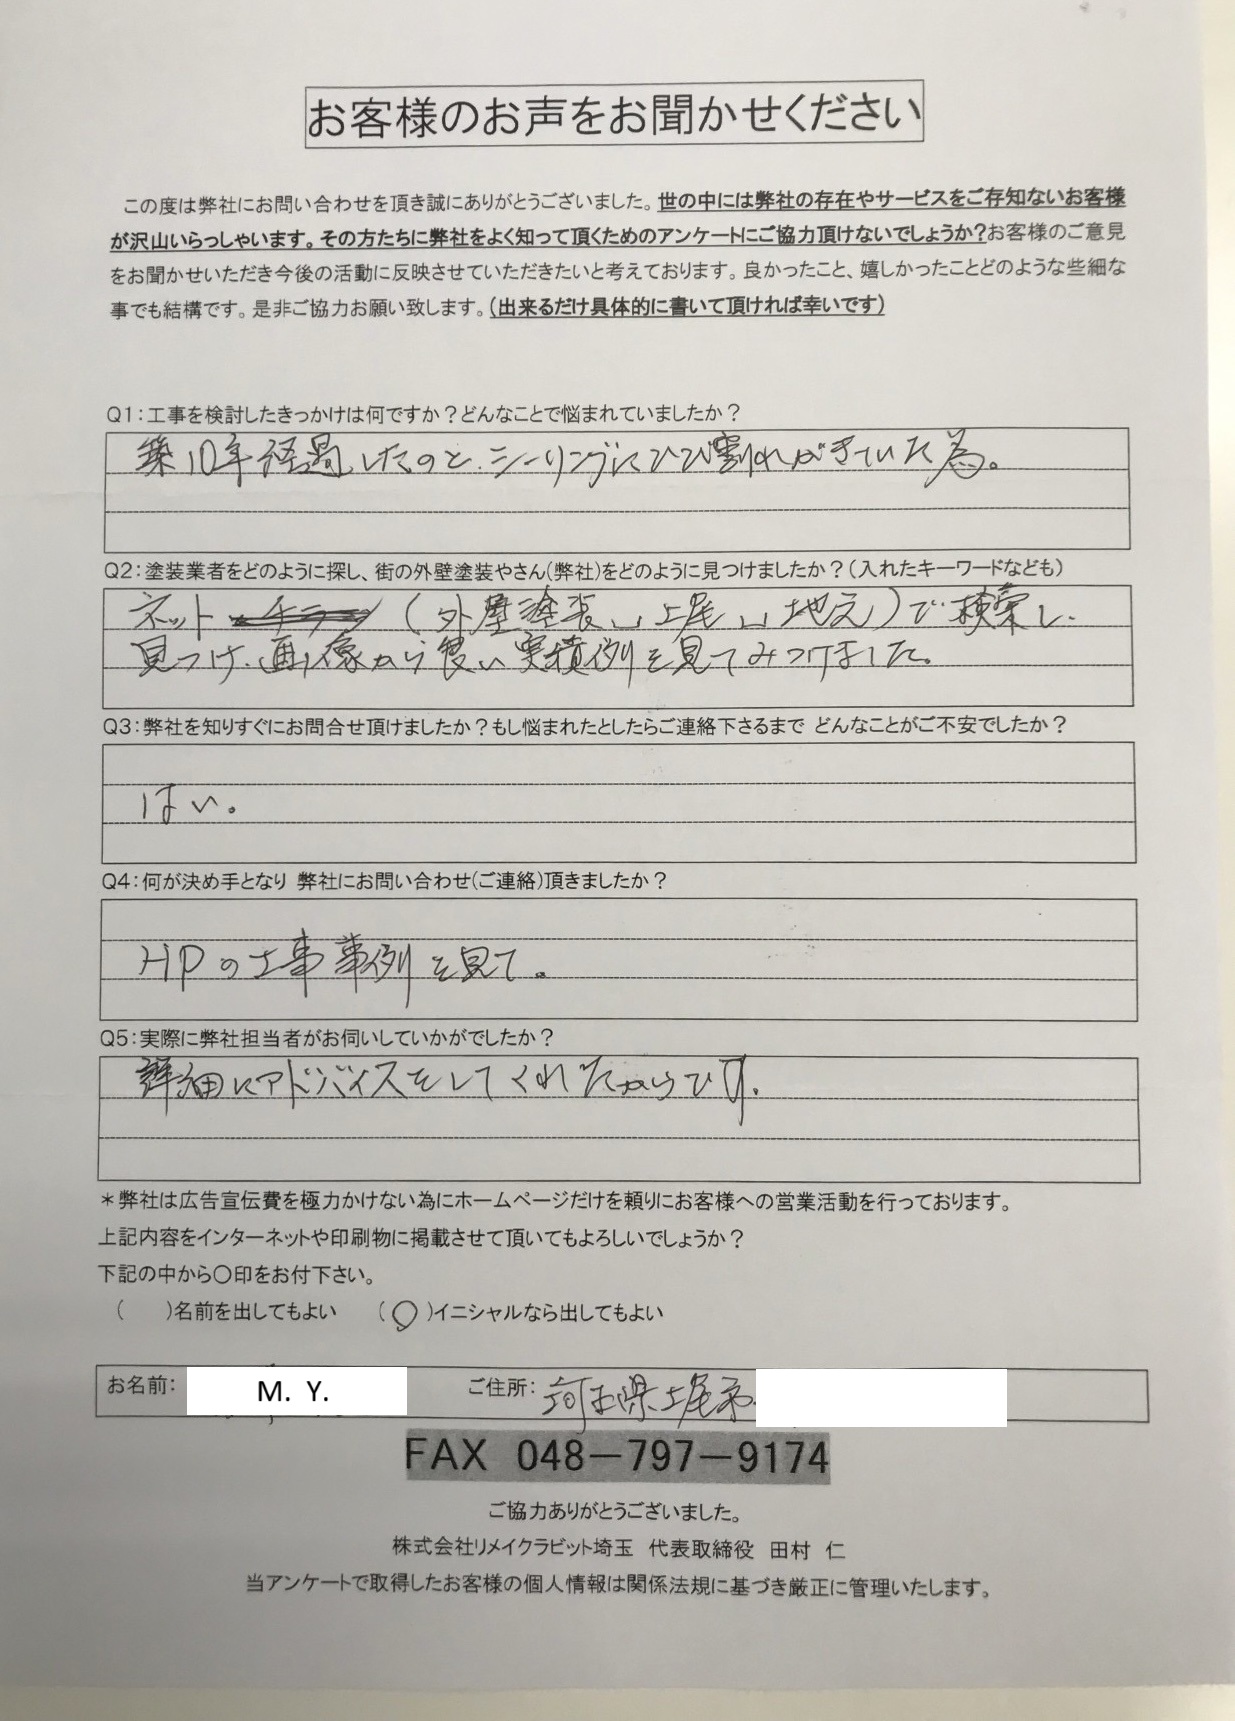 お客様のお声をお聞かせください
この度は弊社にお問い合わせを頂き誠にありがとうございました。世の中には弊社の存在やサービスをご存知ないお客様
が沢山いらっしゃいます。その方たちに弊社をよく知って頂くためのアンケートにご協力頂けないでしょうか?お客様のご意見
をお聞かせいただき今後の活動に反映させていただきたいと考えております。良かったこと、嬉しかったことどのような些細な
事でも結構です。是非ご協力お願い致します。(出来るだけ具体的に書いて頂ければ幸いです)
Q1:工事を検討したきっかけは何ですか?どんなことで悩まれていましたか?
築10年経過したのと、シーリングにひび割れがきていた為。
Q2:塗装業者をどのように探し、街の外壁塗装やさん(弊社)をどのように見つけましたか?(入れたキーワードなども)
ネット チラシ (外壁塗装␣上尾␣地元)で検索し、
見つけ、画像から良い実績例を見てみつけました。
Q3:弊社を知りすぐにお問合せ頂けましたか?もし悩まれたとしたらご連絡下さるまで どんなことがご不安でしたか?
はい。
Q4:何が決め手となり 弊社にお問い合わせ(ご連絡)頂きましたか?
HPの工事事例を見て。
Q5:実際に弊社担当者がお伺いしていかがでしたか?
詳細にアドバイスをしてくれたからです。
*弊社は広告宣伝費を極力かけない為にホームページだけを頼りにお客様への営業活動を行っております。
上記内容をインターネットや印刷物に掲載させて頂いてもよろしいでしょうか?
下記の中から〇印をお付下さい。
( )名前を出してもよい (〇)イニシャルなら出してもよい
お名前: M. Y. ご住所: 埼玉県上尾市
FAX 048-797-9174
ご協力ありがとうございました。
株式会社リメイクラビット埼玉 代表取締役 田村 仁
当アンケートで取得したお客様の個人情報は関係法規に基づき厳正に管理いたします。